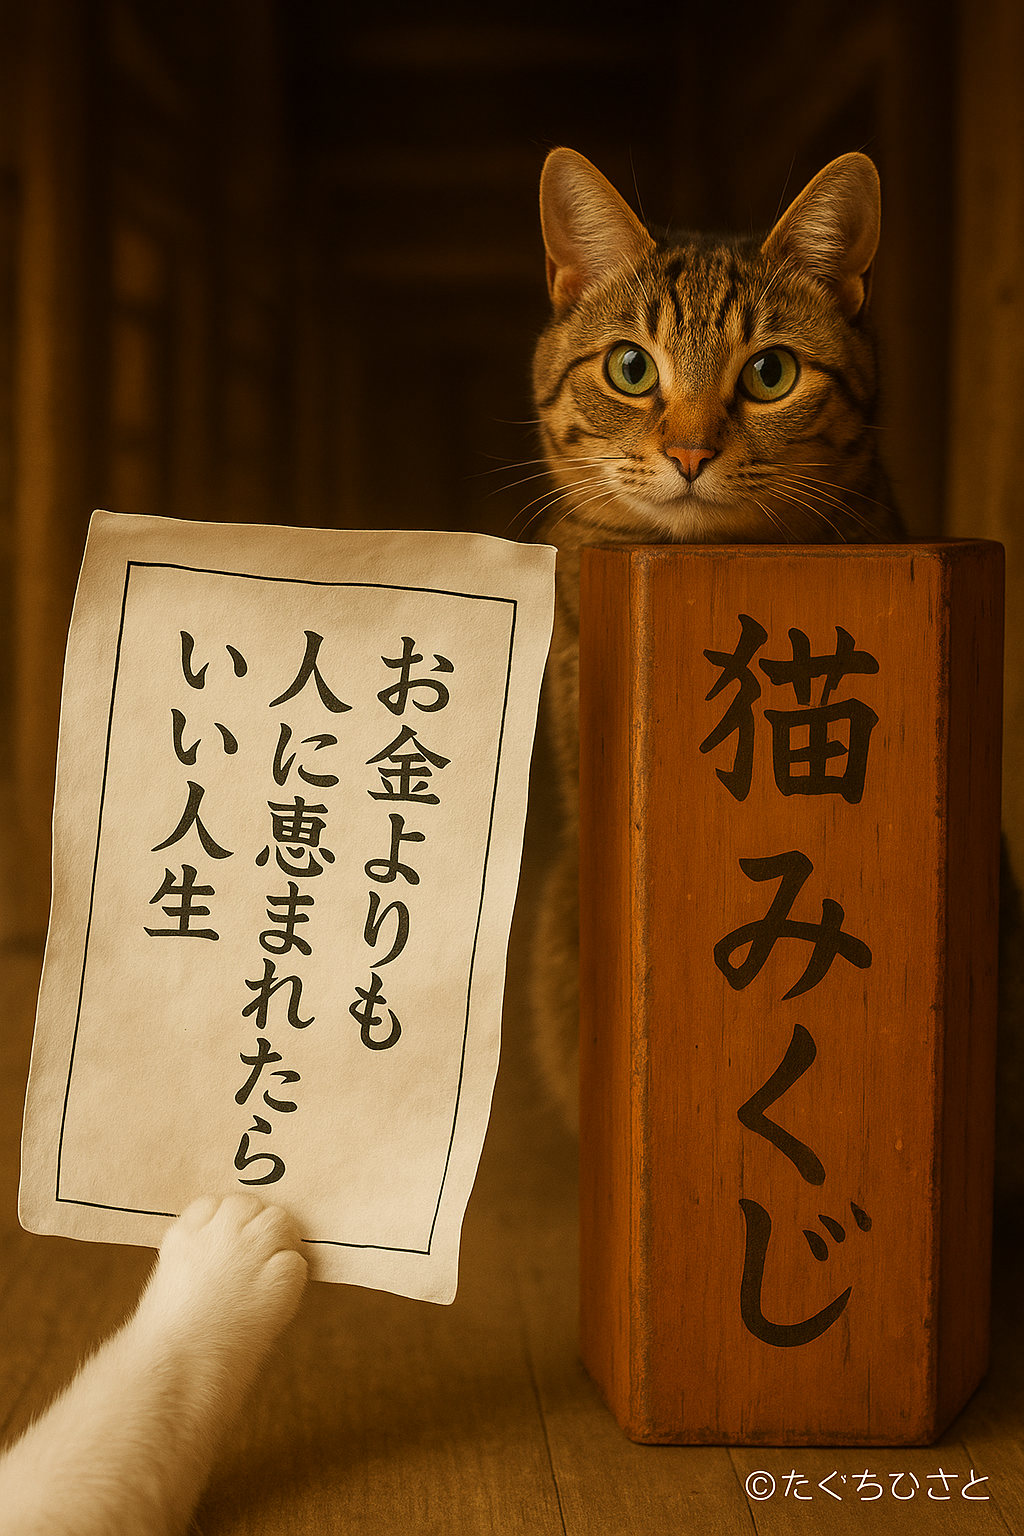 お金よりも
人に恵まれたら
いい人生
猫みくじ
©たぐちひさと